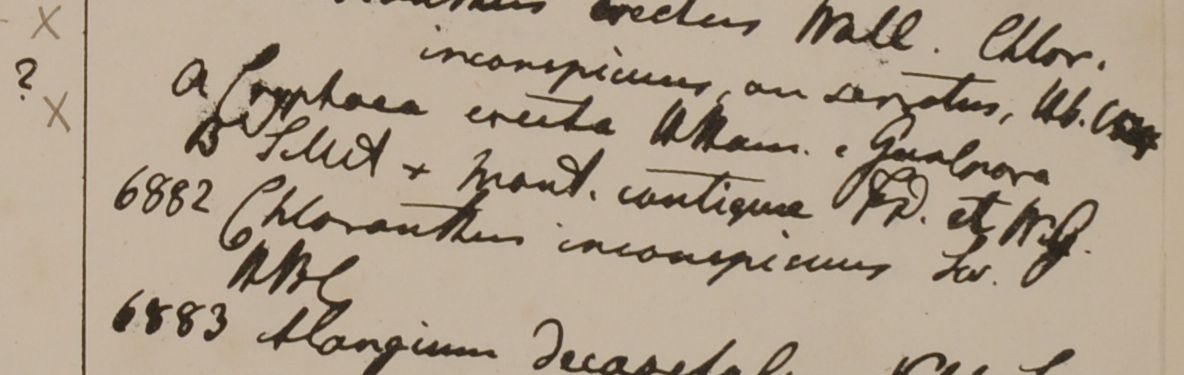 erectus Wall. Chlor.
inconspicuus, an serratus, Hb.
? a Cryphaea erecta HHam. e Gualpara
B Sillet & Mont. contiguae FD. et WG.
6882 Chloranthus inconspicuus Sw.
HBC
6883 Alangium decapetal